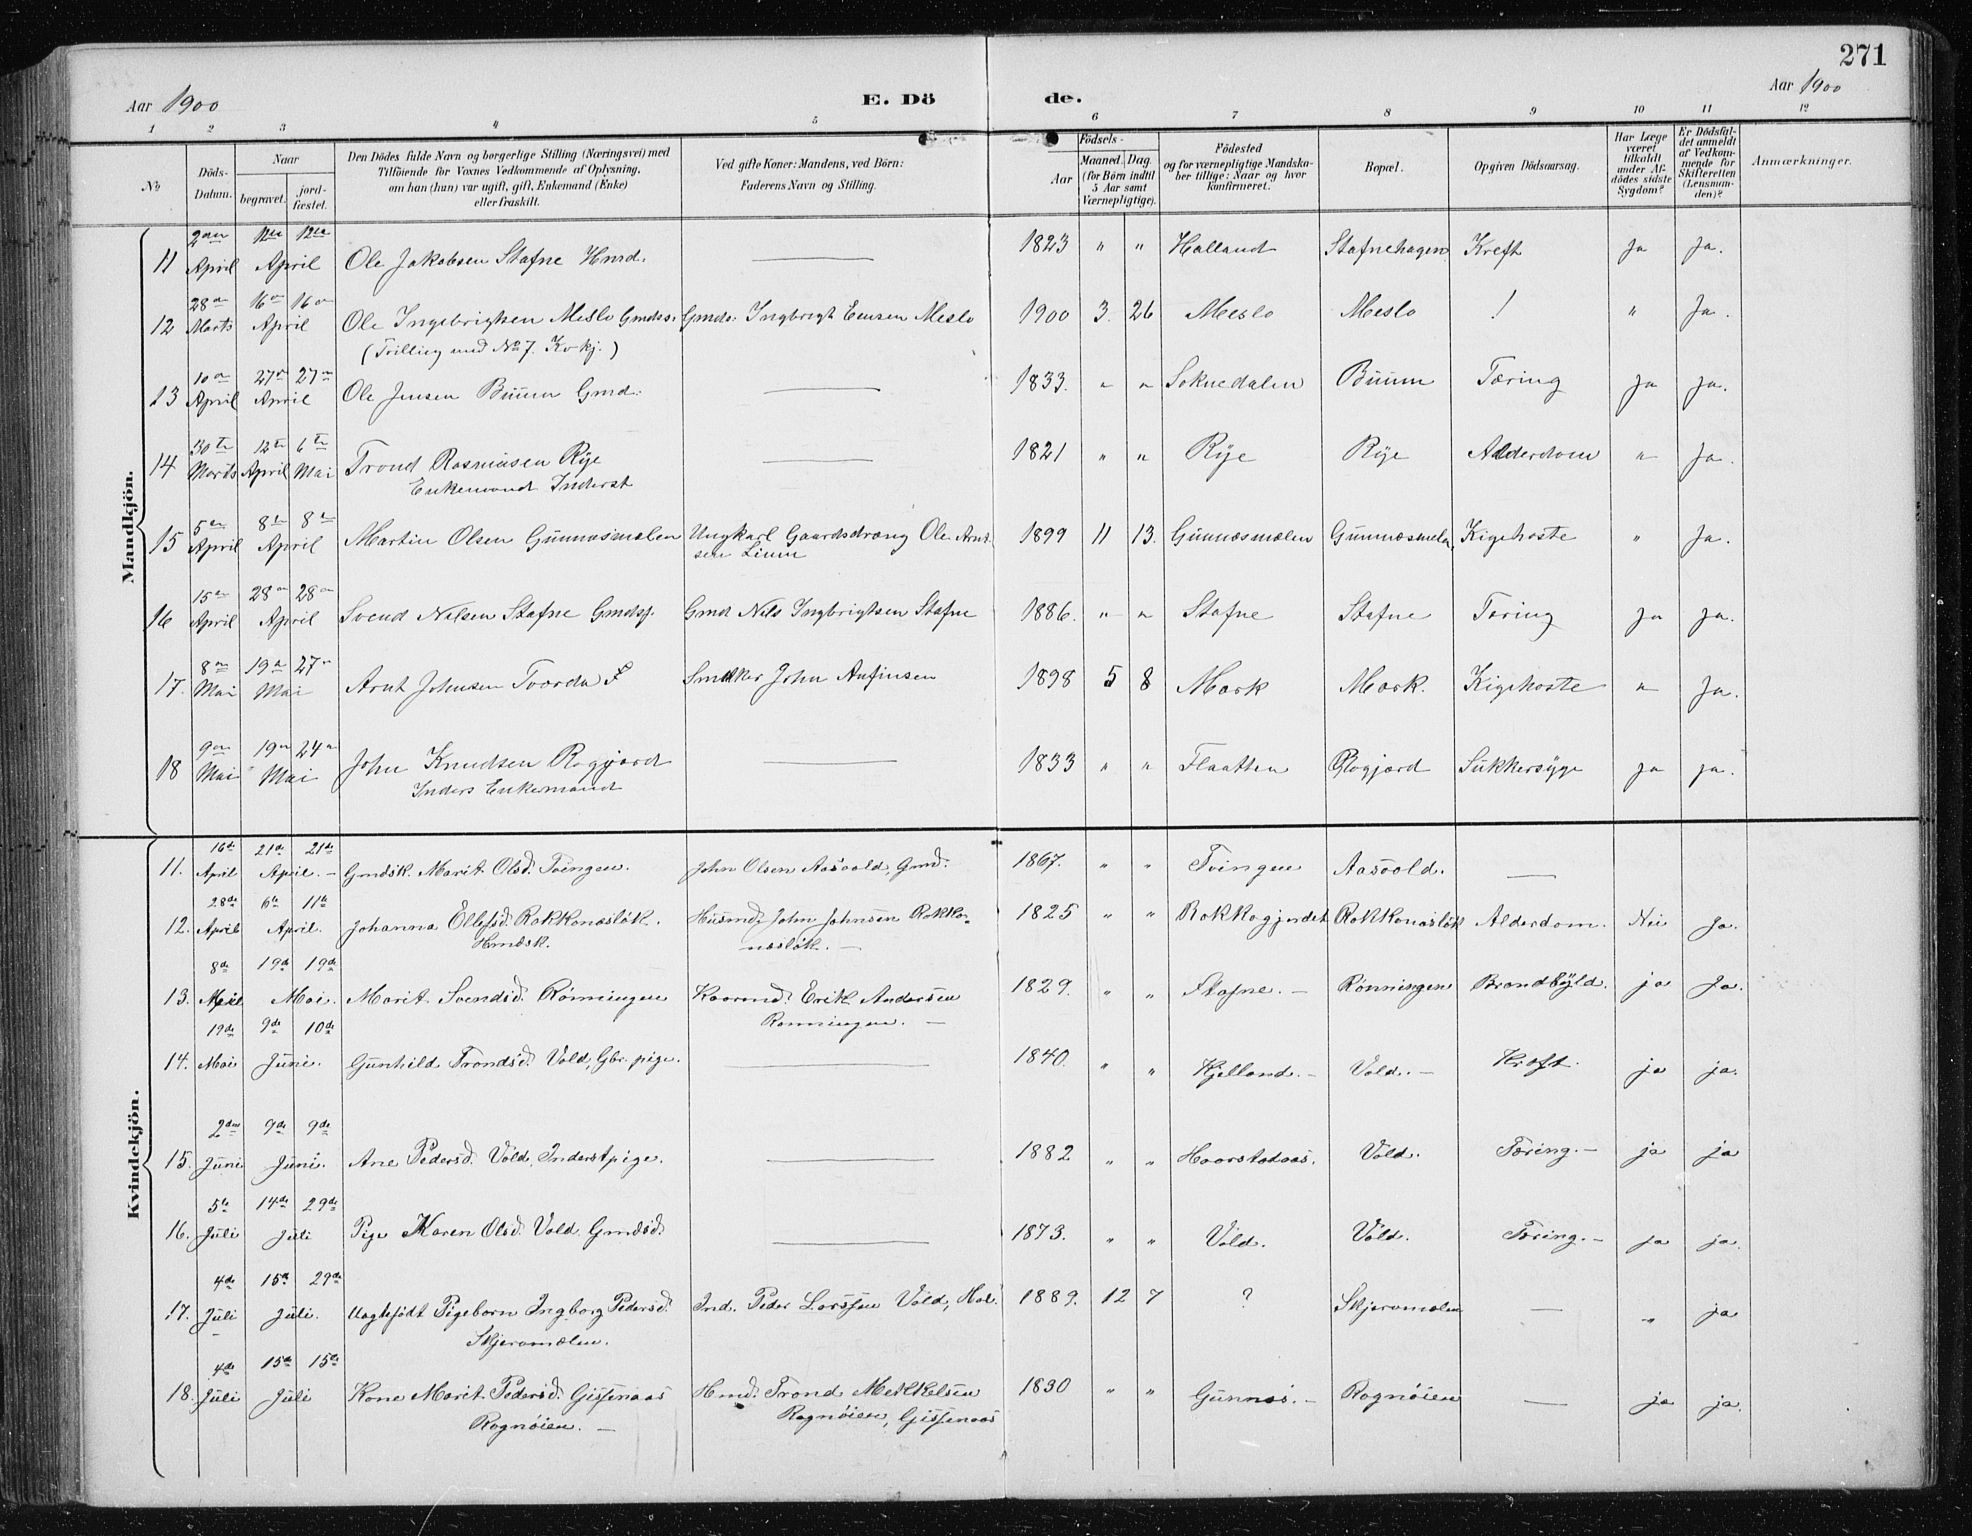 271
Aar 1900 E. Dö de. Aar 1900
1 2 3 4 5 6 7 8 9 10 11 12
No
Döds-Datum.
Naar
begravet.
jord-fæstet.
Den Dödes fulde Navn og borgerlige Stilling (Næringsvei) med
Tilföiende för Voxnes Vedkommende af Oplysning.
om han (hun) var ugift, gift, Enkemand (Enke)
eller fraskilt.
Ved gifte Koner: Mandens, ved Börn:
Faderens Navn og Stilling.
Födsels-
Aar
Maaned. Dag.
(for Börn indtil
5 Aar samt
Værnepligtige).
Födested
og for værnepligtige Mandska-
ber tillige: Naar og hvor
konfirmeret.
Bopæl.
Opgiven Dödsaarsag.
Har Læge
været
tilkaldt
under Af-
dödes sidste
Sygdom?
Er Dödsfal-
det anmeldt
af Vedkom-
mende for
Skifteretten
(Lensman-
den)?
Anmærkninger.
Mandkjön.
11 2den April 12te April 12te Ole Jakobsen Stafne Hmd. — 1823 " " Halland Stafnehagen Kreft Ja Ja.
12 28de Marts 16de April 16de Ole Ingebrigtsen Meslo Gmdss. Gmds. Ingbrigt Ensen Meslo 1900 3. 26 Meslo Meslo ! " Ja.
(Trilling med No 7. Kvkj.)
13 10de April 27de April 27de Ole Jensen Buum Gmd. — 1833. " " Soknedalen Buum Tæring ja ja.
14 30te Marts 12te April 6te Mai Trond Rasmusen Rye — 1821 " " Rye Rye Alderdom " Ja.
Enkemand Inderst
15 5te April 8de April 8de Martin Olsen Gunnæsmælen Ungkarl Gaardsdræng Ole Arnt 1899 11 13. Gunnæsmælen Gunnæsmelen Kighoste " Ja.
sen Lium
16 15de April 28de April 28de Svend Nelsen Stafne Gmdsf. Gmd Nils Ingbrigtsen Stafne 1886. " " Stafne Stafne Tæring ja ja.
17. 8de Mai 19de Mai 27de Arnt Johnsen Tværda John Anfinsen 1898 5 8 Mærk Mærk. Kighoste " Ja.
18 9de Mai 19de Mai 24de John Knudsen Rogjærd — 1833 " " Flaatten Rogjærd Sukkersyge ja ja.
Inders Enkemand
Kvindekjön.
11. 16de April 21de April. 21de Gmdsk. Marit Olsd. Tvingen. John Olsen Aasvold, Gmd. 1867. " " Tvingen Aasvold. —
12. 28de April 6te April. 11te Johanna Ellefsd. Rokkonæsløk. Husmd. John Johnsen Rokko- 1825 " " Rokkogjerdet Rokkonæsløk Alderdom. Nei Ja.
Hmdsk. næsløk. —
13. 8de Mai 19de Mai. 19de Marit Svendsd. Rönningen Kaarmd. Erik Andersen 1829. " " Stafne. — Rönningen Brandbyld. ja Ja.
Rönningen. —
14. 19de Mai 9de Juni. 10de Gunhild Trondsd. Vold, Gbr. pige. — 1840. " " Kjelland. — Vold. — Kræft. ja ja.
15. 2den Juni 9de Juni. 9de Ane Pedersd. Vold, Inderstpige. — 1882 " " Haarstadaas. Vold. Tæring. — ja ja
16. 5te Juli 14de Juli 29de Pige Karen Olsd. Vold Gmdsd. — 1873. " " Vold. Vold. Tæring. — ja ja.
17. 4de Juli 15de Juli. 29de Uægtefödt Pigebarn Ingborg Pedersd. Ind. Peder Larssen Vold, Hol. 1889. 12 7 ? Skjeromælen — " ja
Skjeromælen.
18. 4de Juli 15de Juli 15de Kone Marit Pedersd. Gissenaas Hmd. Trond Mekkelsen 1830 " " Gunnæs. — Rognöien — ja ja.
Rognöien. — Rognöien, Gissenaas